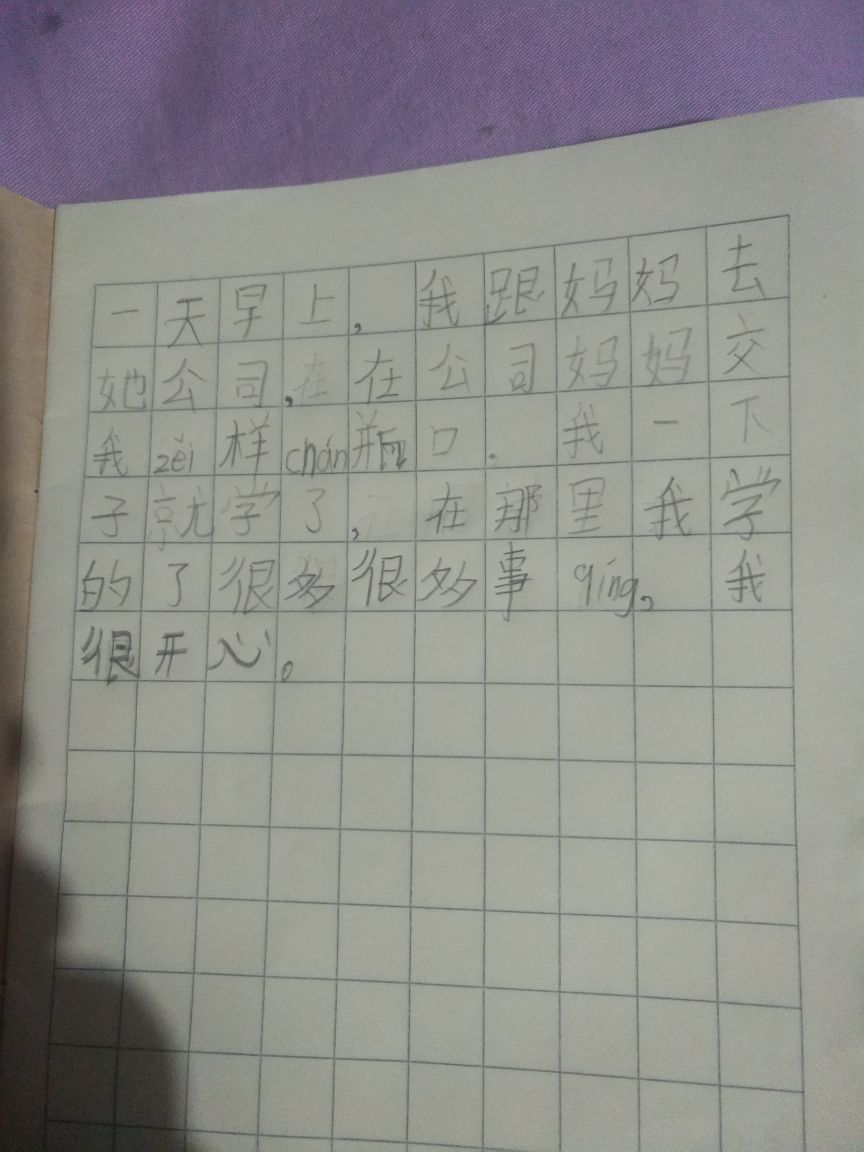 一天早上，我跟妈妈去
她公司，在在公司妈妈交
我zěi样chán瓶口．我一下
子就学了，在那里我学
的了很多很多事qíng，我
很开心。